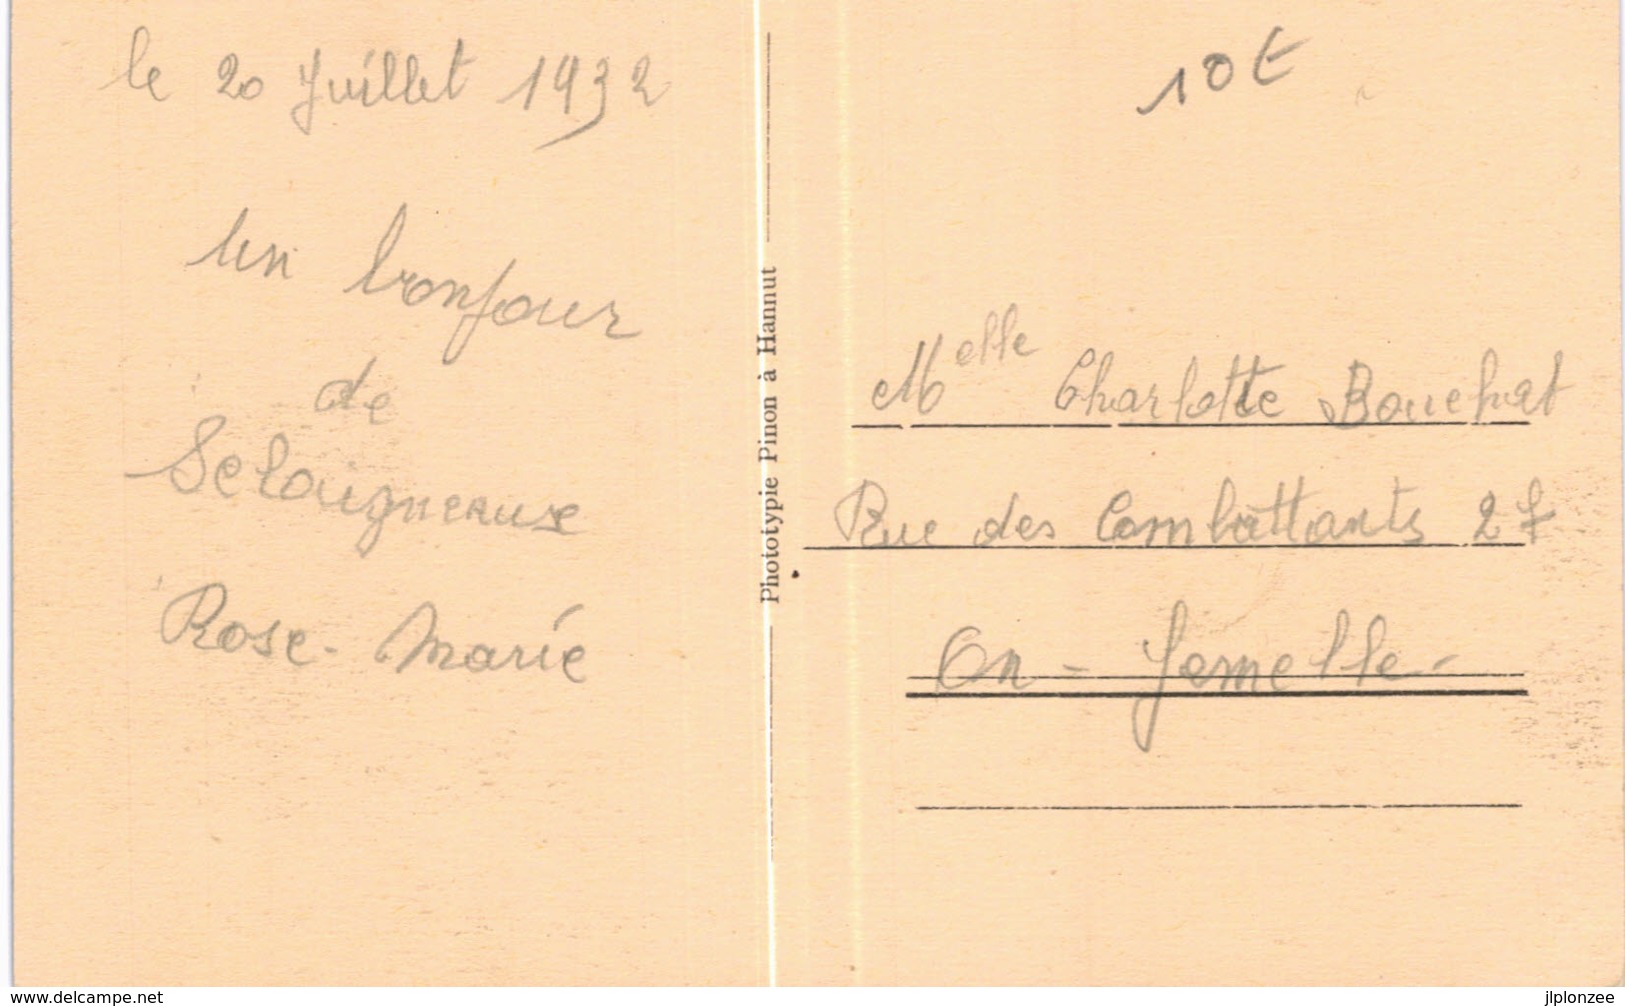 le 20 Juillet 1932
un bonjour
de
Sclaigneaux
Rose-Marie
Phototypie Pinon à Hannut
10 €
Melle Charlotte Bouchat
Rue des Combattants 27
On - Jemelle -
www.delcampe.net
jlplonzee